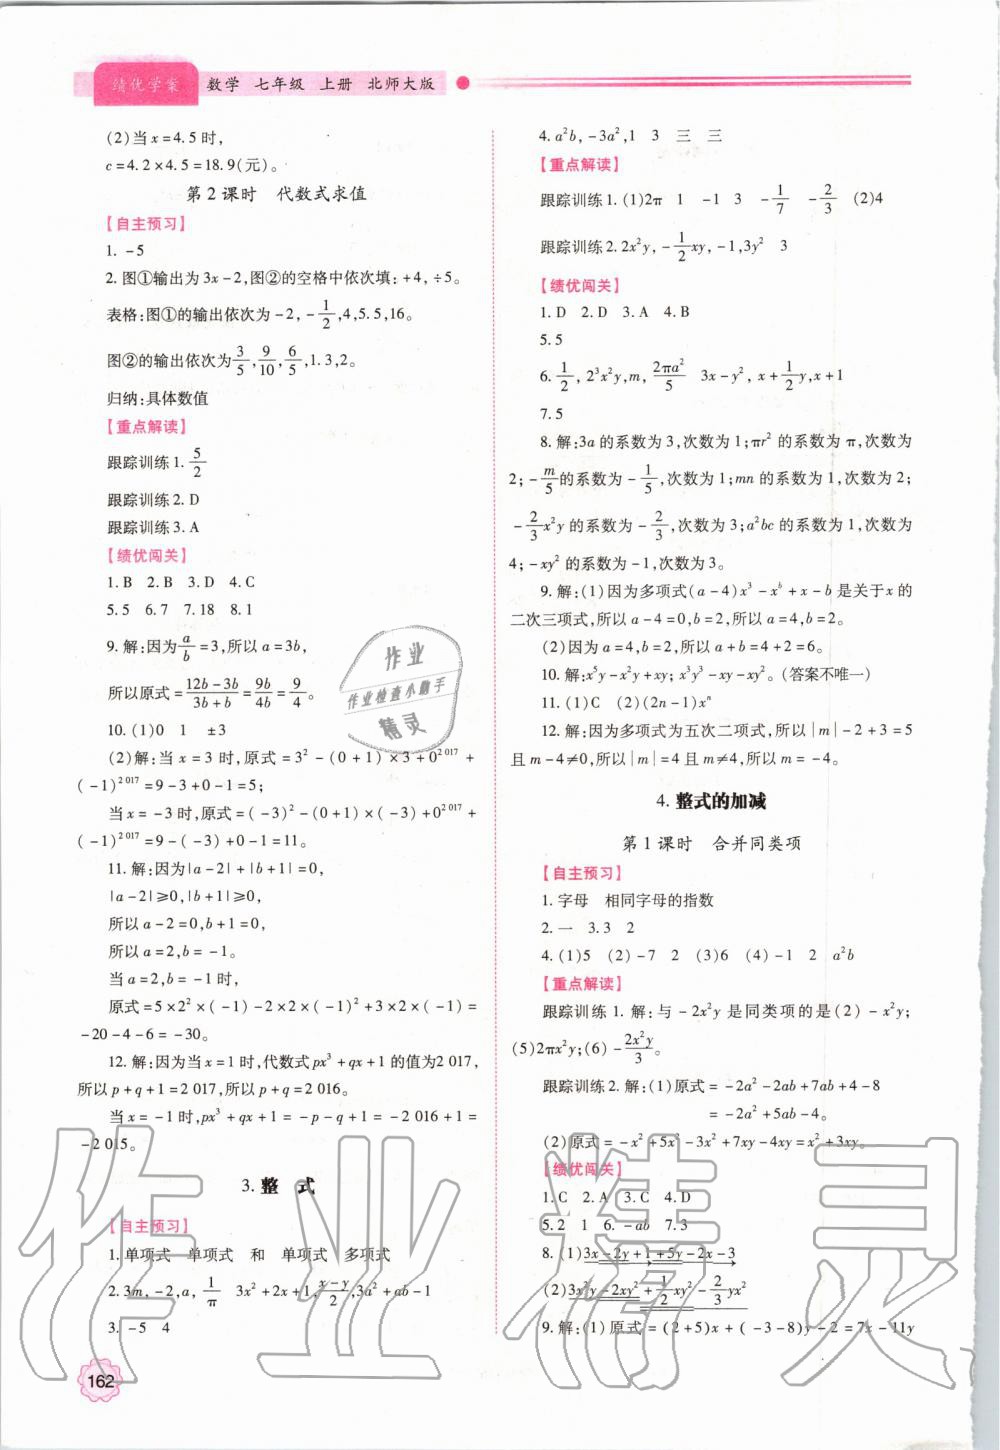 绩优学案 数学 七年级 上册 北师大版
(2)当x=4.5时,
c=4.2×4.5=18.9(元)。
第2课时 代数式求值
【自主预习】
1. -5
2. 图①输出为3x-2,图②的空格中依次填:+4,÷5。
表格:图①的输出依次为-2,-1/2,4,5.5,16。
图②的输出依次为3/5,9/10,6/5,1.3,2。
归纳:具体数值
【重点解读】
跟踪训练1. 5/2
跟踪训练2. D
跟踪训练3. A
【绩优闯关】
1. B 2. B 3. D 4. C
5.5 6.7 7.18 8.1
9. 解:因为a/b=3,所以a=3b,
所以原式=(12b-3b)/(3b+b)=9b/4b=9/4。
10. (1)0 1 ±3
(2)解:当x=3时,原式=3²-(0+1)×3+0²⁰¹⁷+
(-1)²⁰¹⁷=9-3+0-1=5;
当x=-3时,原式=(-3)²-(0+1)×(-3)+0²⁰¹⁷+
(-1)²⁰¹⁷=9-(-3)+0-1=11。
11. 解:因为|a-2|+|b+1|=0,
|a-2|≥0,|b+1|≥0,
所以a-2=0,b+1=0,
所以a=2,b=-1。
当a=2,b=-1时,
原式=5×2²×(-1)-2×2×(-1)²+3×2×(-1)=
-20-4-6=-30。
12. 解:因为当x=1时,代数式px³+qx+1的值为2 017,
所以p+q+1=2 017,所以p+q=2 016。
当x=-1时,px³+qx+1=-p-q+1=-2 016+1=
-2 015。
3. 整 式
【自主预习】
1. 单项式 单项式 和 单项式 多项式
2. 3m,-2,a,1/π 3x²+2x+1,(x-y)/2,3a²+ab-1
3. -5 4
162
4. a²b,-3a²,1 3 三 三
【重点解读】
跟踪训练1. (1)2π 1 -1 3 -1/7 -2/3 (2)4
跟踪训练2. 2x²y,-1/2xy,-1,3y² 3
【绩优闯关】
1. D 2. D 3. A 4. B
5.5
6. 1/2,2³x²y,m,2πa²/5 3x-y²,x+1/2y,x+1
7.5
8. 解:3a的系数为3,次数为1;πr²的系数为π,次数为
2;-m/5的系数为-1/5,次数为1;mn的系数为1,次数为2;
-2/3x²y的系数为-2/3,次数为3;a²bc的系数为1,次数为
4;-xy²的系数为-1,次数为3。
9. 解:(1)因为多项式(a-4)x³-xᵇ+x-b是关于x的
二次三项式,所以a-4=0,b=2,所以a=4,b=2。
(2)因为a=4,b=2,所以a+b=4+2=6。
10. 解:x⁵y-x²y+xy;x³y³-xy-xy²。(答案不唯一)
11. (1)C (2)(2n-1)xⁿ
12. 解:因为多项式为五次二项式,所以|m|-2+3=5
且m-4≠0,所以|m|=4且m≠4,所以m=-4。
4. 整式的加减
第1课时 合并同类项
【自主预习】
1. 字母 相同字母的指数
2. 一 3.3 2
4. (1)5 (2)-7 2 (3)6 (4)-1 2 a²b
【重点解读】
跟踪训练1. 解:与-2x²y是同类项的是(2)-x²y;
(5)2πx²y;(6)-2x²y/3。
跟踪训练2. 解:(1)原式=-2a²-2ab+7ab+4-8
=-2a²+5ab-4。
(2)原式=-x²+5x²-3x²+7xy-4xy=x²+3xy。
【绩优闯关】
1. C 2. A 3. C 4. D
5.2 1 6. -ab 7.3
8. (1)3x-2y+1+5y-2x-3
(2)3x²y-2xy²+1/2xy²-2/3yx²
9. 解:(1)原式=(2+5)x+(-3-8)y-2=7x-11y
作业
作业检查小助手
精灵
作业精灵